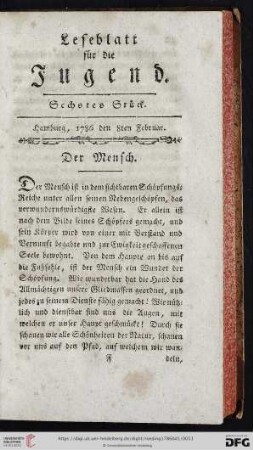 Leseblatt
für die
Jugend.
Sechstes Stück.
Hamburg, 1786 den 8ten Februar.
Der Mensch.
Der Mensch ist in dem sichtbaren Schöpfungs
Reiche unter allen seinen Nebengeschöpfen, das
verwundernswürdigste Wesen. Er allein ist
nach dem Bilde seines Schöpfers gemacht, und
sein Körper wird von einer mit Verstand und
Vernunft begabte und zur Ewigkeit geschaffenen
Seele bewohnt. Von dem Haupte an bis auf
die Fußsohle, ist der Mensch ein Wunder der
Schöpfung. Wie wunderbar hat die Hand des
Allmächtigen unsere Gliedmassen geordnet, und
jedes zu seinem Dienste fähig gemacht! Wie nütz-
lich und dienstbar sind uns die Augen, mit
welchen er unser Haupt geschmückt! Durch sie
schauen wir alle Schönheiten der Natur, schauen
wir auf den Pfad, auf welchem wir wan-
F deln,
UNIVERSITÄTS-BIBLIOTHEK HEIDELBERG
© Universitätsbibliothek Heidelberg
gefördert durch die DFG